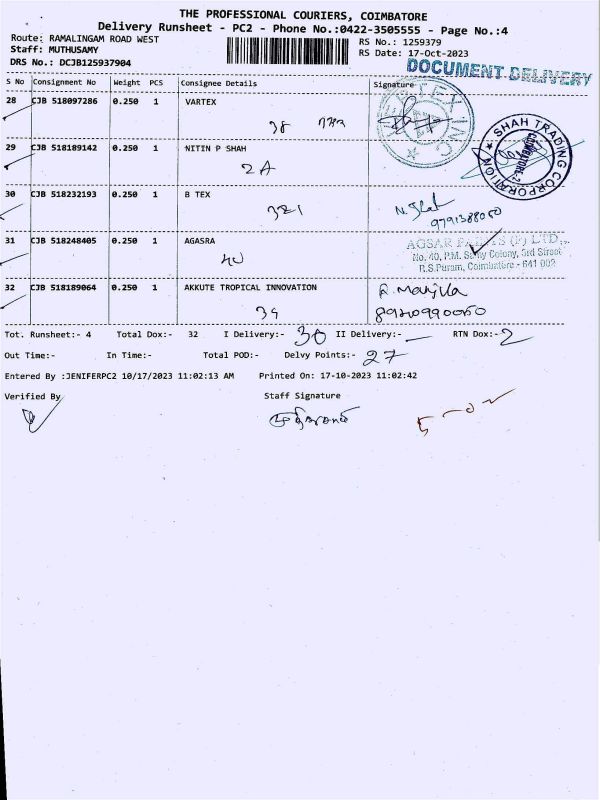 THE PROFESSIONAL COURIERS, COIMBATORE
Delivery Runsheet - PC2 - Phone No.:0422-3505555 - Page No.:4
Route: RAMALINGAM ROAD WEST
RS No.: 1259379
Staff: MUTHUSAMY
RS Date: 17-Oct-2023
DRS No.: DCJB125937904
DOCUMENT DELIVERY
S No Consignment No Weight PCS Consignee Details Signature
28 CJB 518097286 0.250 1 VARTEX
38
SHAH TRADING CORPORATION
COIMBATORE-2
29 CJB 518189142 0.250 1 NITIN P SHAH
2A
30 CJB 518232193 0.250 1 B TEX
321
9791388050
31 CJB 518248405 0.250 1 AGASRA
40
No. 40, P.M. Samy Colony, 3rd Street
R.S.Puram, Coimbatore - 641 002
32 CJB 518189064 0.250 1 AKKUTE TROPICAL INNOVATION
R. Manjula
34
8920990050
Tot. Runsheet:- 4 Total Dox:- 32 I Delivery:- 30 II Delivery:- RTN Dox:- 2
Out Time:- In Time:- Total POD:- Delvy Points:- 27
Entered By :JENIFERPC2 10/17/2023 11:02:13 AM Printed On: 17-10-2023 11:02:42
Verified By Staff Signature